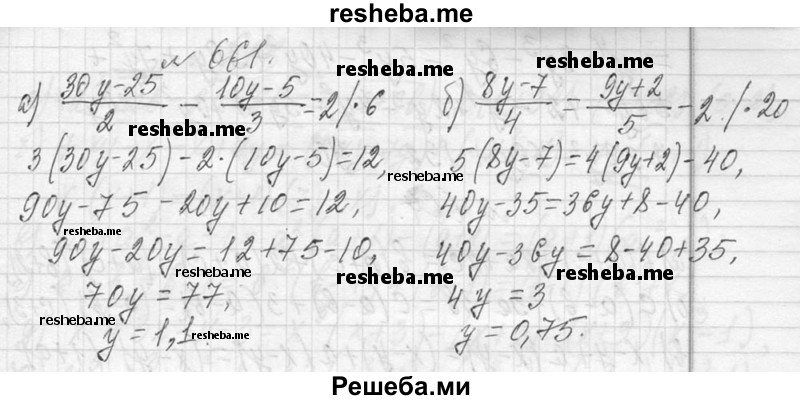 resheba.me
№ 661.
а) (30y-25)/2 - (10y-5)/3 = 2 /·6
resheba.me
resheba.me
3(30y-25)-2·(10y-5)=12,
90y-75-20y+10=12,
resheba.me
90y-20y=12+75-10,
resheba.me
70y=77,
resheba.me
y=1,1.
resheba.me
resheba.me
б) (8y-7)/4 = (9y+2)/5 - 2. /·20
resheba.me
resheba.me
5(8y-7)=4(9y+2)-40,
40y-35=36y+8-40,
resheba.me
40y-36y=8-40+35,
resheba.me
resheba.me
4y=3
y=0,75.
resheba.me
Решеба.ми